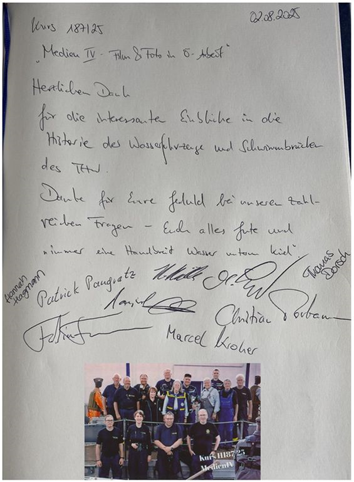 02.08.2025
Kurs 187/25
„Medien IV - Film & Foto in Ö-Arbeit"
Herzlichen Dank
für die interessanten Einblicke in die
Historie der Wasserfahrzeuge und Schwimmbrücken
des THW.
Danke für Eure Geduld bei unseren zahl-
reichen Fragen - Euch alles Gute und
„immer eine Handbreit Wasser unterm Kiel"
Kenneth
Patrick Pangratz
Thomas
Christian
Marcel Kroher
Kurs II 187/25
Medien IV